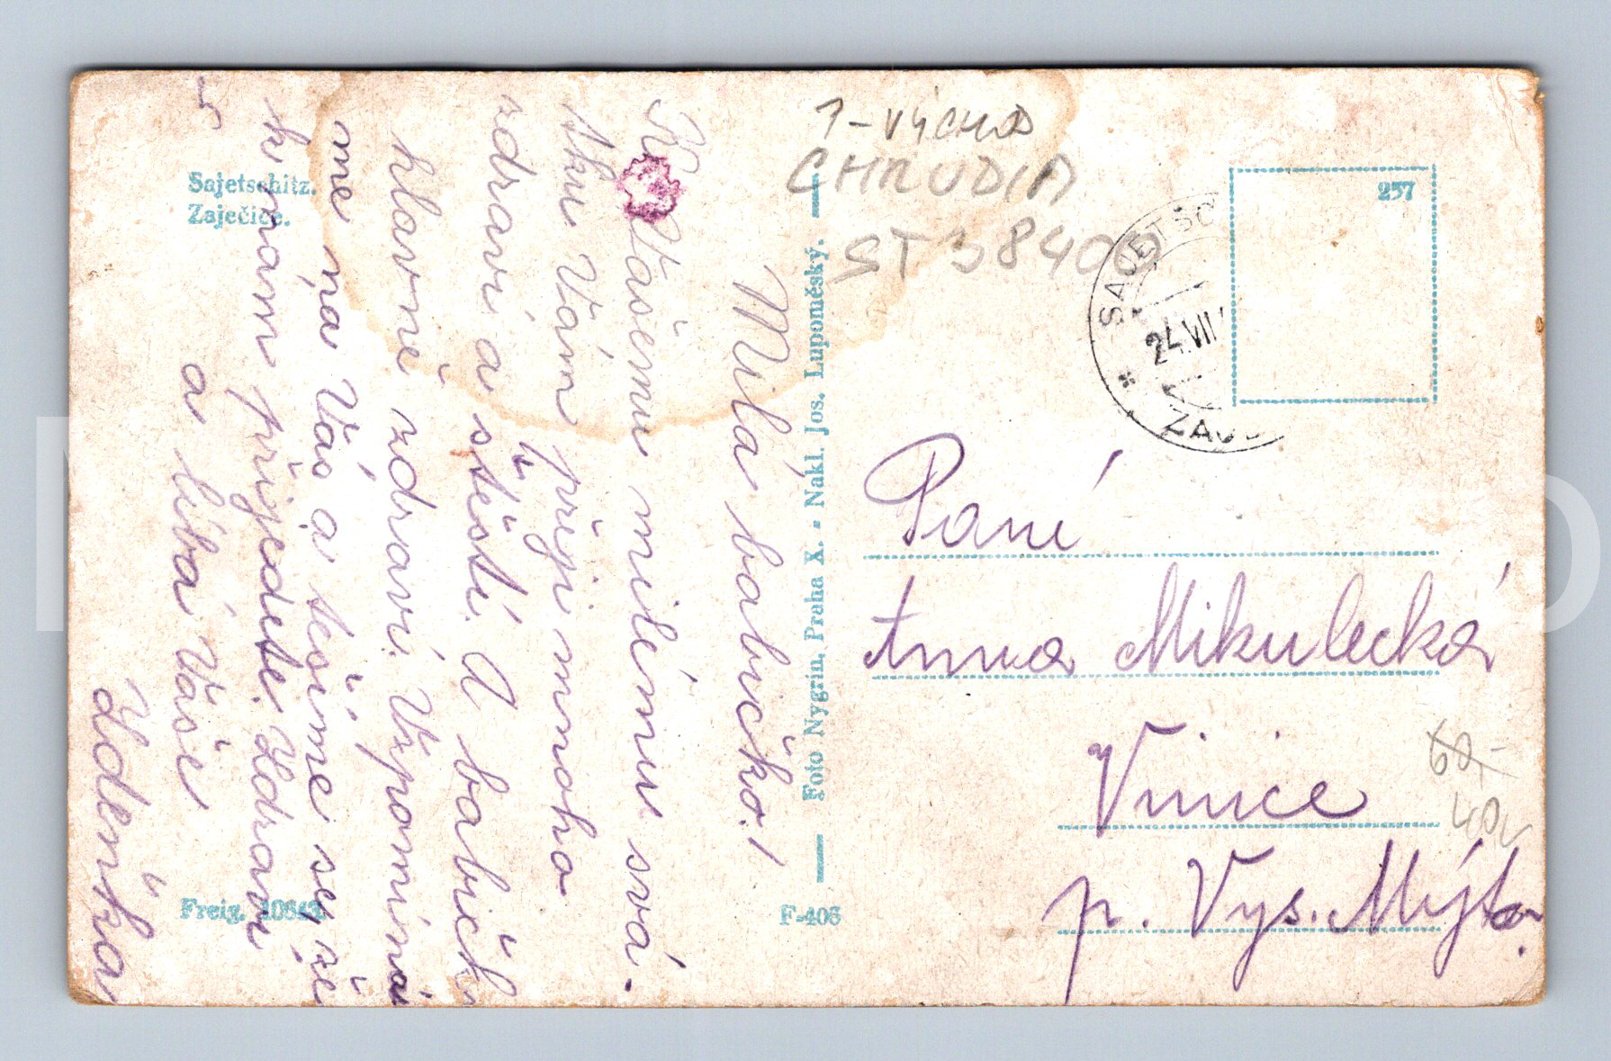 Sajetschitz.
Zaječice.
Milá babičko!
K Vašemu milému svá-
tku Vám přeji mnoho
zdraví a štěstí. A babičk
hlavně zdraví. Vzpomíná
me na Vás a těšíme se, že
k nám přijedete. Zdraví
a líbá Vás
Zdenka
Freig.
F-406
Foto Nygrin, Praha X. - Nakl. Jos. Lupoměský.
1-VÝCHOD
CHRUDIM
ST 38400
257
SAJETSCH
24.VII
ZAJ
Paní
Anna Mikulecká
Vinice
p. Vys. Mýto.
60,-
40,-